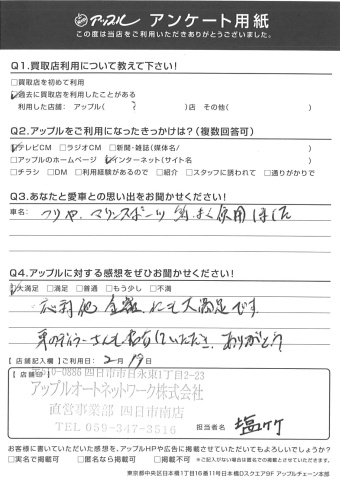 アップル アンケート用紙
この度は当店をご利用いただきありがとうございました。
Q1.買取店利用について教えて下さい!
□買取店を初めて利用
☑過去に買取店を利用したことがある
利用した店舗: アップル( ? )店 その他( )
Q2.アップルをご利用になったきっかけは?(複数回答可)
☑テレビCM □ラジオCM □新聞・雑誌(媒体名/ )
□アップルのホームページ ☑インターネット(サイト名 )
□チラシ □DM □利用経験があるので □紹介 □スタッフに誘われて □通りがかりで
Q3.あなたと愛車との思い出をお聞かせください!
車名: マリンスポーツ
Q4.アップルに対する感想をぜひお聞かせください!
☑大満足 □満足 □普通 □もう少し □不満
金額にも大満足です。
ありがとう
【店舗記入欄】ご利用日: 2月19日
【店舗印】
〒510-0886 四日市市日永東1丁目2-23
アップルオートネットワーク株式会社
直営事業部 四日市南店
TEL 059-347-3516
担当者名
お客様に書いていただいた感想を、アップルHPや広告に掲載させていただいてもよろしいでしょうか?
□実名で掲載可 □匿名なら掲載可 □掲載不可 ※ご記入がない場合は匿名での掲載とさせていただきます。
東京都中央区日本橋1丁目16番11号日本橋Dスクエア9F アップルチェーン本部